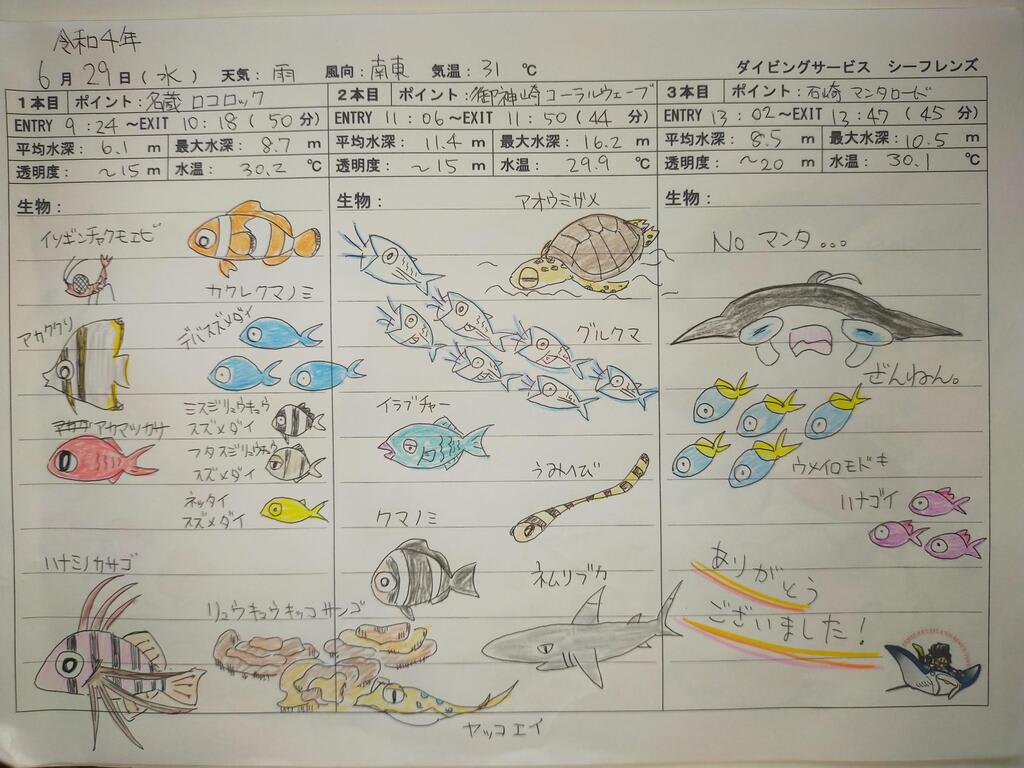 令和4年
6月29日(水) 天気:雨 風向:南東 気温:31℃ ダイビングサービス シーフレンズ
1本目 ポイント:名蔵 ロコロック
ENTRY 9:24~EXIT 10:18(50分)
平均水深: 6.1 m 最大水深: 8.7 m
透明度: ~15 m 水温: 30.2 ℃
生物:
イソギンチャクモエビ
カクレクマノミ
アカククリ
デバスズメダイ
ミスジリュウキュウ
スズメダイ
アカマツカサ
フタスジリュウキュウ
スズメダイ
ネッタイ
スズメダイ
ハナミノカサゴ
リュウキュウキッコサンゴ
2本目 ポイント:御神崎コーラルウェーブ
ENTRY 11:06~EXIT 11:50(44分)
平均水深: 11.4 m 最大水深: 16.2 m
透明度: ~15 m 水温: 29.9 ℃
生物:
アオウミガメ
グルクマ
イラブチャー
うみへび
クマノミ
ネムリブカ
ヤッコエイ
3本目 ポイント:石崎 マンタロード
ENTRY 13:02~EXIT 13:47(45分)
平均水深: 8.5 m 最大水深: 10.5 m
透明度: ~20 m 水温: 30.1 ℃
生物:
No マンタ...
ざんねん。
ウメイロモドキ
ハナゴイ
ありがとう
ございました!